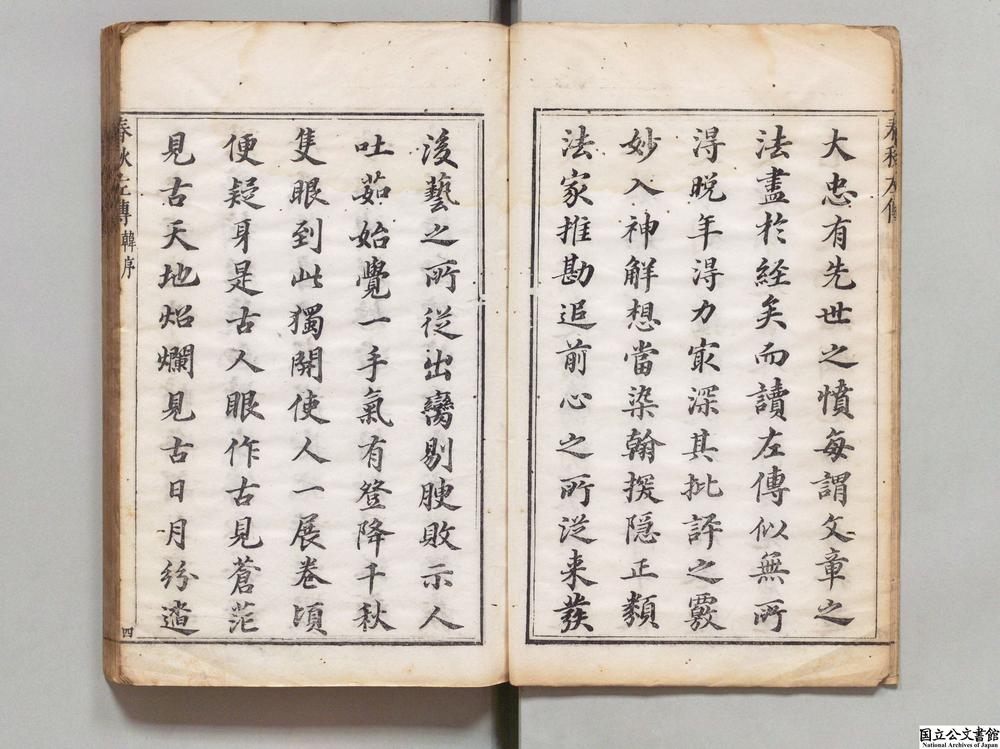 大忠有先世之憤每謂文章之
法盡於經矣而讀左傳似無所
得晚年得力㝡深其批評之覈
妙入神解想當染翰援隱正類
法家推勘追前心之所從来發
後藝之所從出臠剔腴敗示人
吐茹始覺一手氣有登降千秋
隻眼到此獨開使人一展卷頃
便疑身是古人眼作古見蒼茫
見古天地炤爛見古日月紛遝
春秋左傳
韓序
四
春秋左傳
国立公文書館
National Archives of Japan